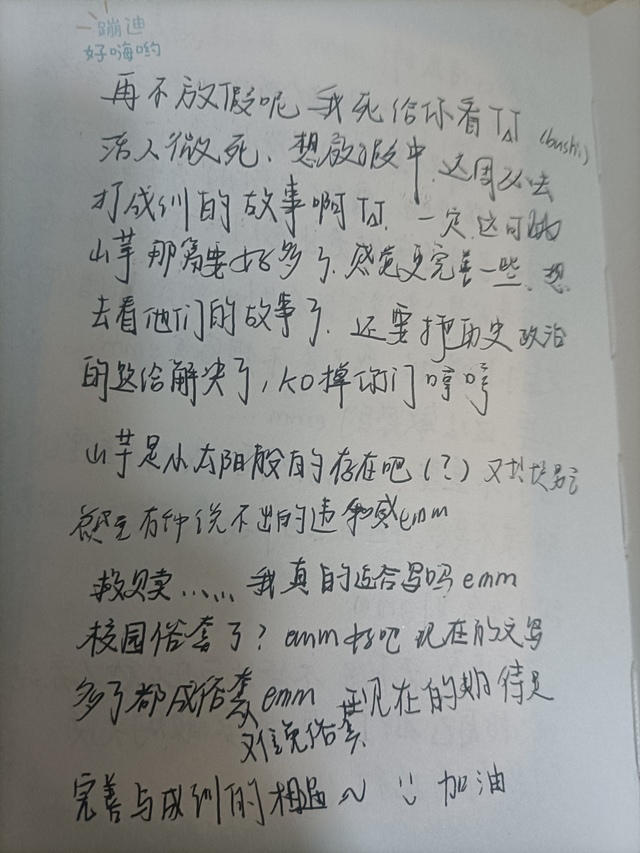 一蹦迪
好嗨哟
再不放假呢 我死给你看 TAT (bushi)
活人微死、想放假中.这周双去
打成训的故事啊TAT. 一定.这可
山芋那篇要好多了.感觉更完善一些.想
去看他们的故事了.还要把历史政治
的这给解决了,KO掉你们哼哼
山芋是小太阳般的存在吧(?)对
有种说不出的违和感emm
救赎…… 我真的适合写吗emm
校园俗套了? emm好吧 现在的文写
多了都成俗套emm 现在的期待是
难免俗套
完善与成训的相遇~ 加油